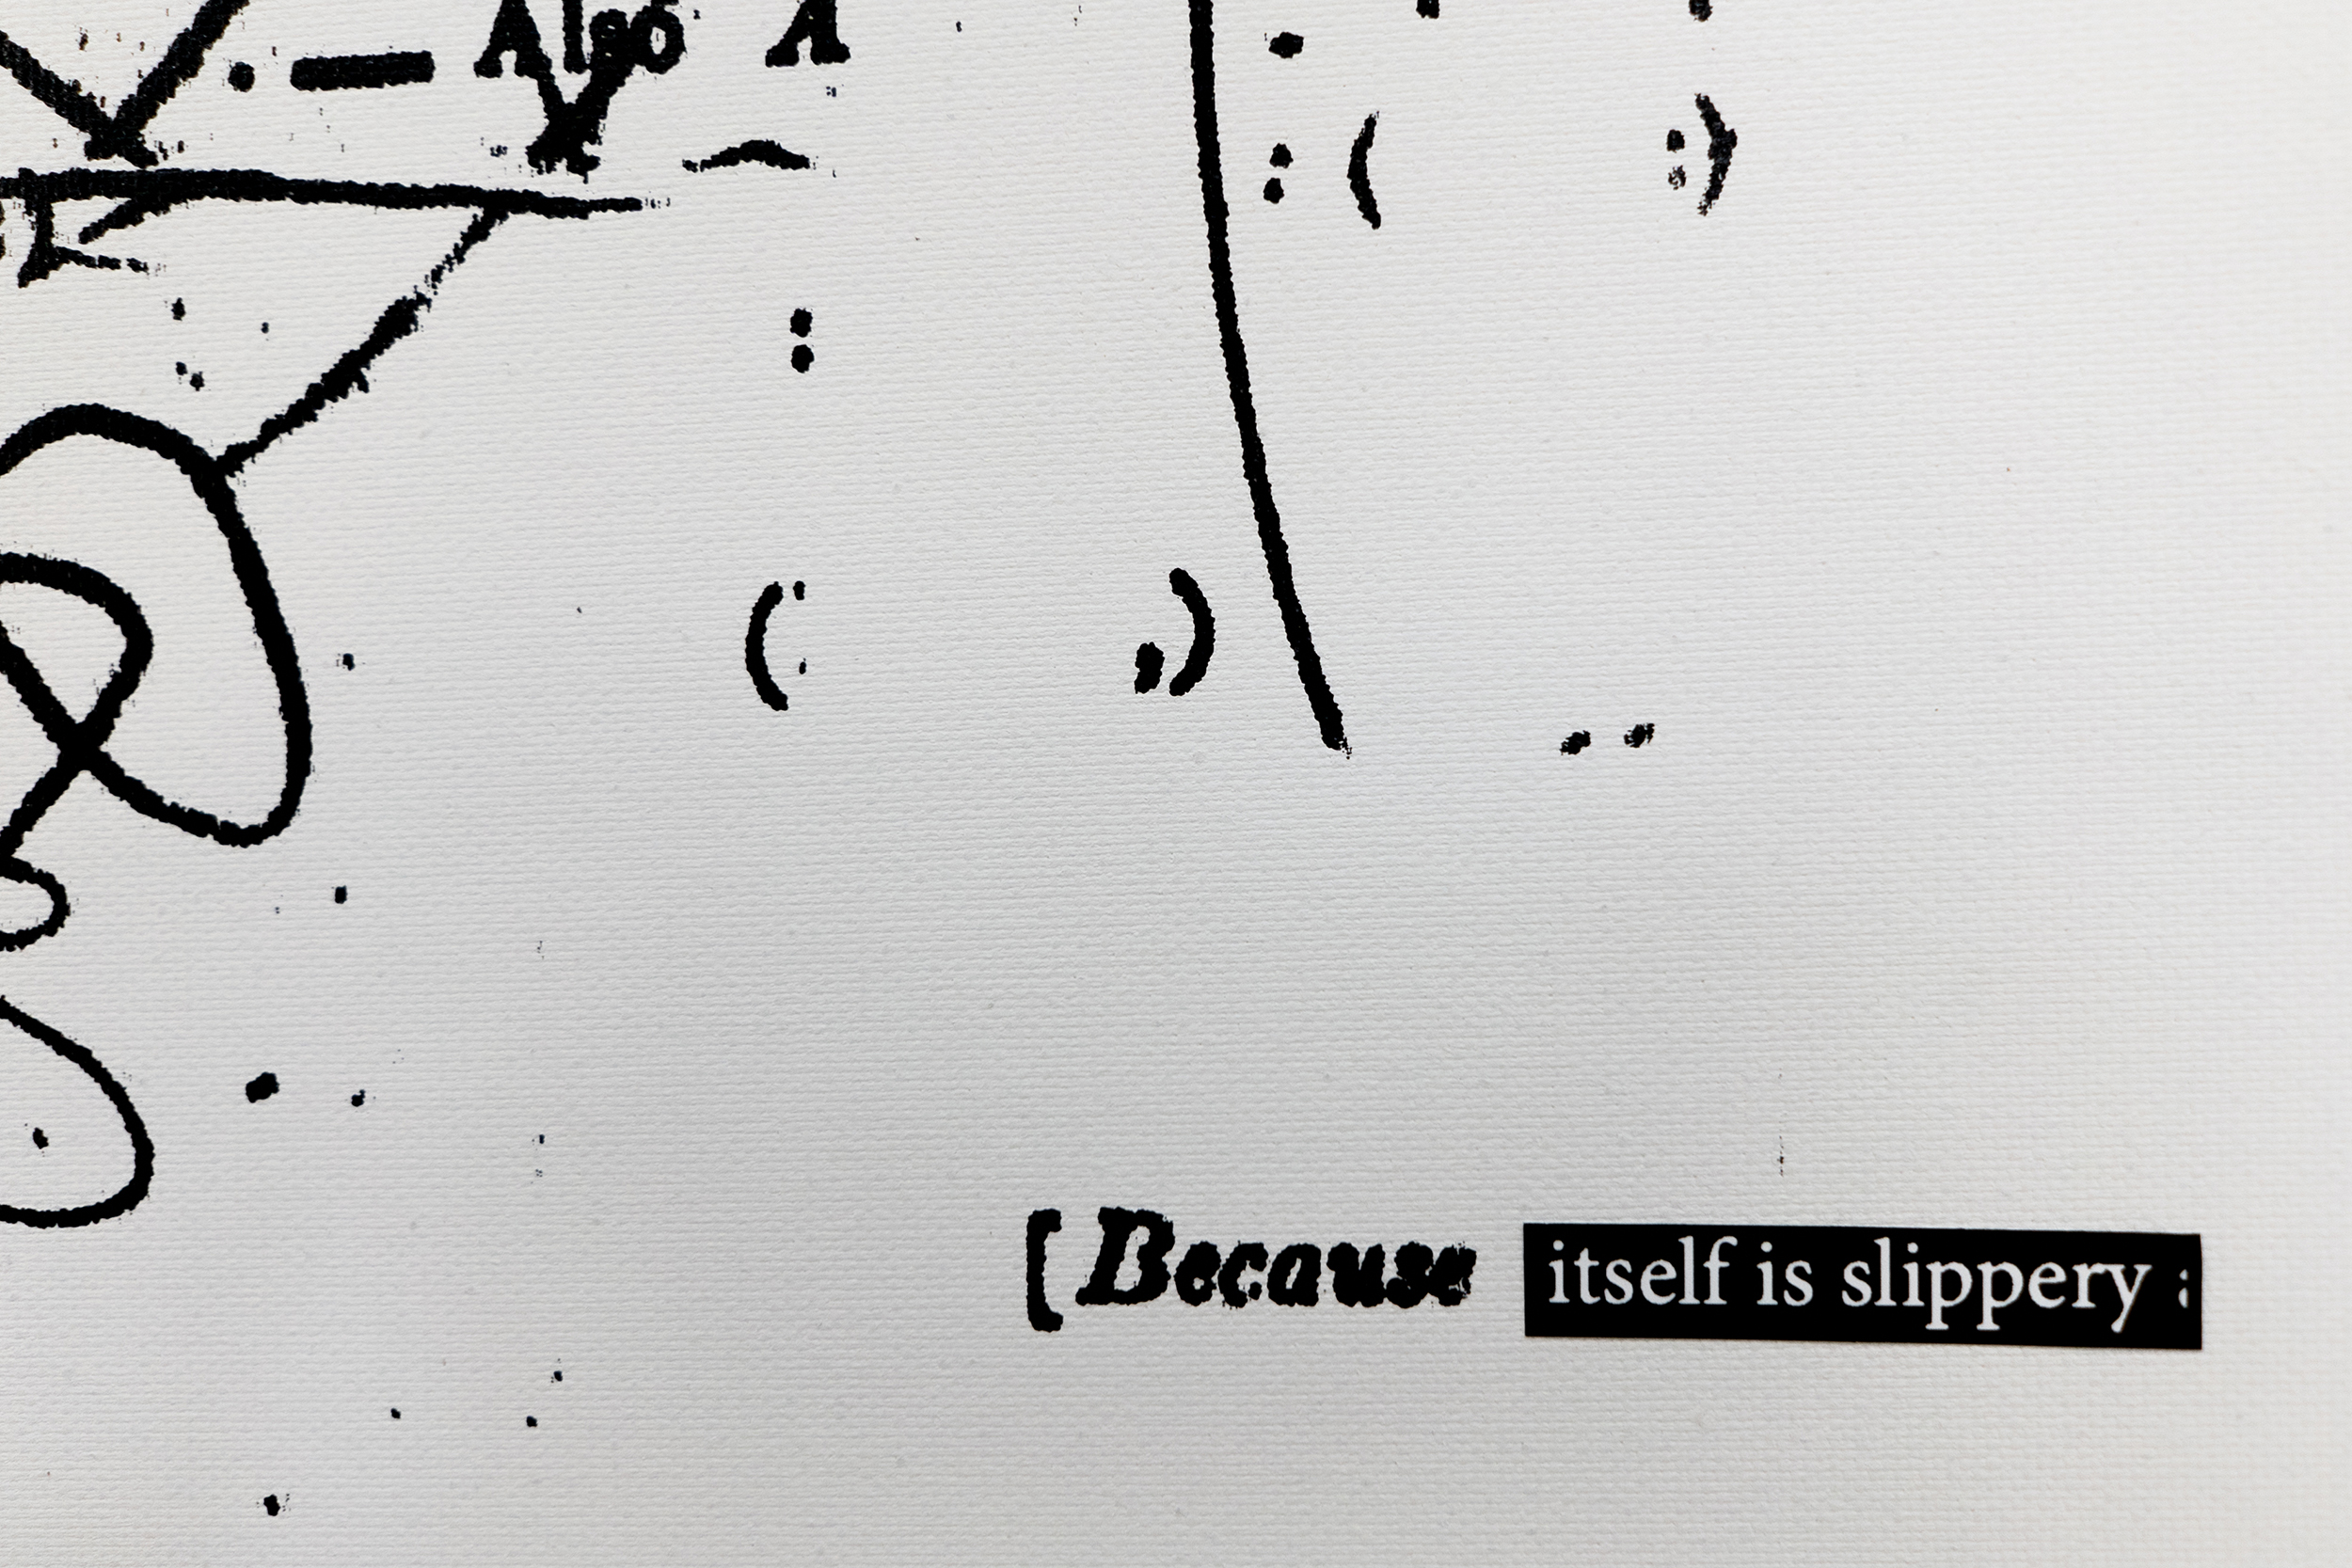 . — Also A
: ( :)
:
( )
[ Because itself is slippery